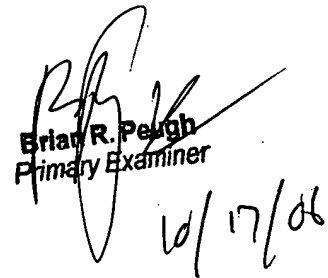 Brian R. Peugh
Primary Examiner
10/17/06